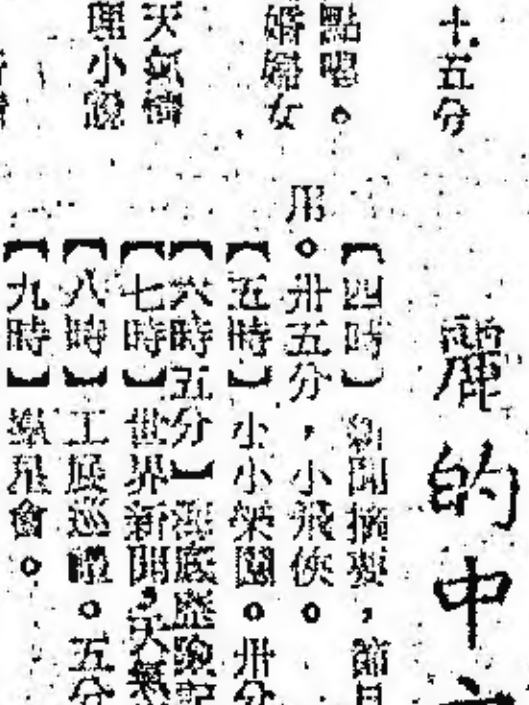 十五分
點唱。
婚婦女
天氣情
理小說
麗的中
【四時】新聞摘要，節目
用。卅五分，小飛俠。
【五時】小小樂園。卅分
【六時五分】海底歷險記
【七時】世界新聞，天氣
【八時】工展巡禮。五分
【九時】羣星會。